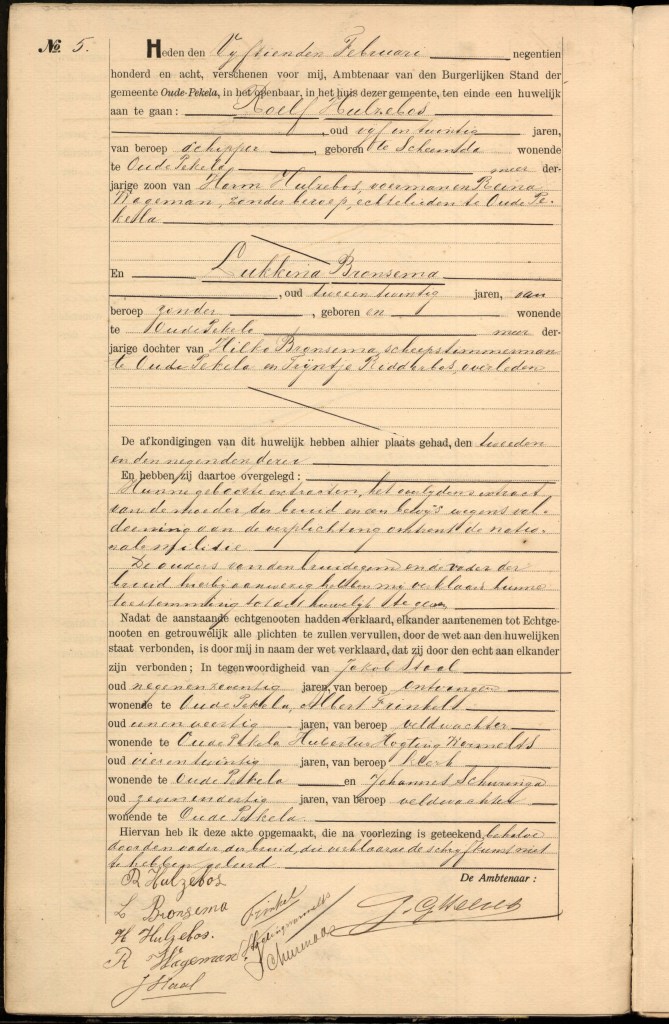 No. 5.
Heden den Vyftienden Februari negentien
honderd en acht, verschenen voor mij, Ambtenaar van den Burgerlijken Stand der
gemeente Oude-Pekela, in het openbaar, in het huis dezer gemeente, ten einde een huwelijk
aan te gaan: Roelf Hulzebos
, oud vyf en twintig jaren,
van beroep schipper, geboren te Scheemda wonende
te Oude Pekela meer der-
jarige zoon van Harm Hulzebos, voerman en Reina
Wageman, zonder beroep, echtelieden te Oude Pe-
kela
En Lukkina Bronsema
, oud twee en twintig jaren, van
beroep zonder, geboren en wonende
te Oude Pekela meer der-
jarige dochter van Hilko Bronsema, scheepstimmerman
te Oude Pekela en Tryntje Ridderbos, overleden
De afkondigingen van dit huwelijk hebben alhier plaats gehad, den tweeden
en den negenden dezer
En hebben zij daartoe overgelegd:
Hunne geboorte extracten, het overlydens extract
van de moeder der bruid en een bewys wegens vol-
doening aan de verplichting omtrent de natio-
nale militie
De ouders van den bruidegom en de vader der
bruid hierby aanwezig hebben my verklaard hunne
toestemming tot dit huwelyk te geven
Nadat de aanstaande echtgenooten hadden verklaard, elkander aantenemen tot Echtge-
nooten en getrouwelijk alle plichten te zullen vervullen, door de wet aan den huwelijken
staat verbonden, is door mij in naam der wet verklaard, dat zij door den echt aan elkander
zijn verbonden; In tegenwoordigheid van Jakob Staal
oud negen en zeventig jaren, van beroep ontvanger
wonende te Oude Pekela, Albert Frinkel
oud een en veertig jaren, van beroep veldwachter
wonende te Oude Pekela Hubertus
oud vier en twintig jaren, van beroep klerk
wonende te Oude Pekela en Johannes Schuringa
oud zeven en dertig jaren, van beroep veldwachter
wonende te Oude Pekela.
Hiervan heb ik deze akte opgemaakt, die na voorlezing is geteekend, behalve
door den vader der bruid, die verklaarde de schryfkunst niet
te hebben geleerd
De Ambtenaar:
R Hulzebos
L Bronsema
H Hulzebos.
R Wageman
J Staal